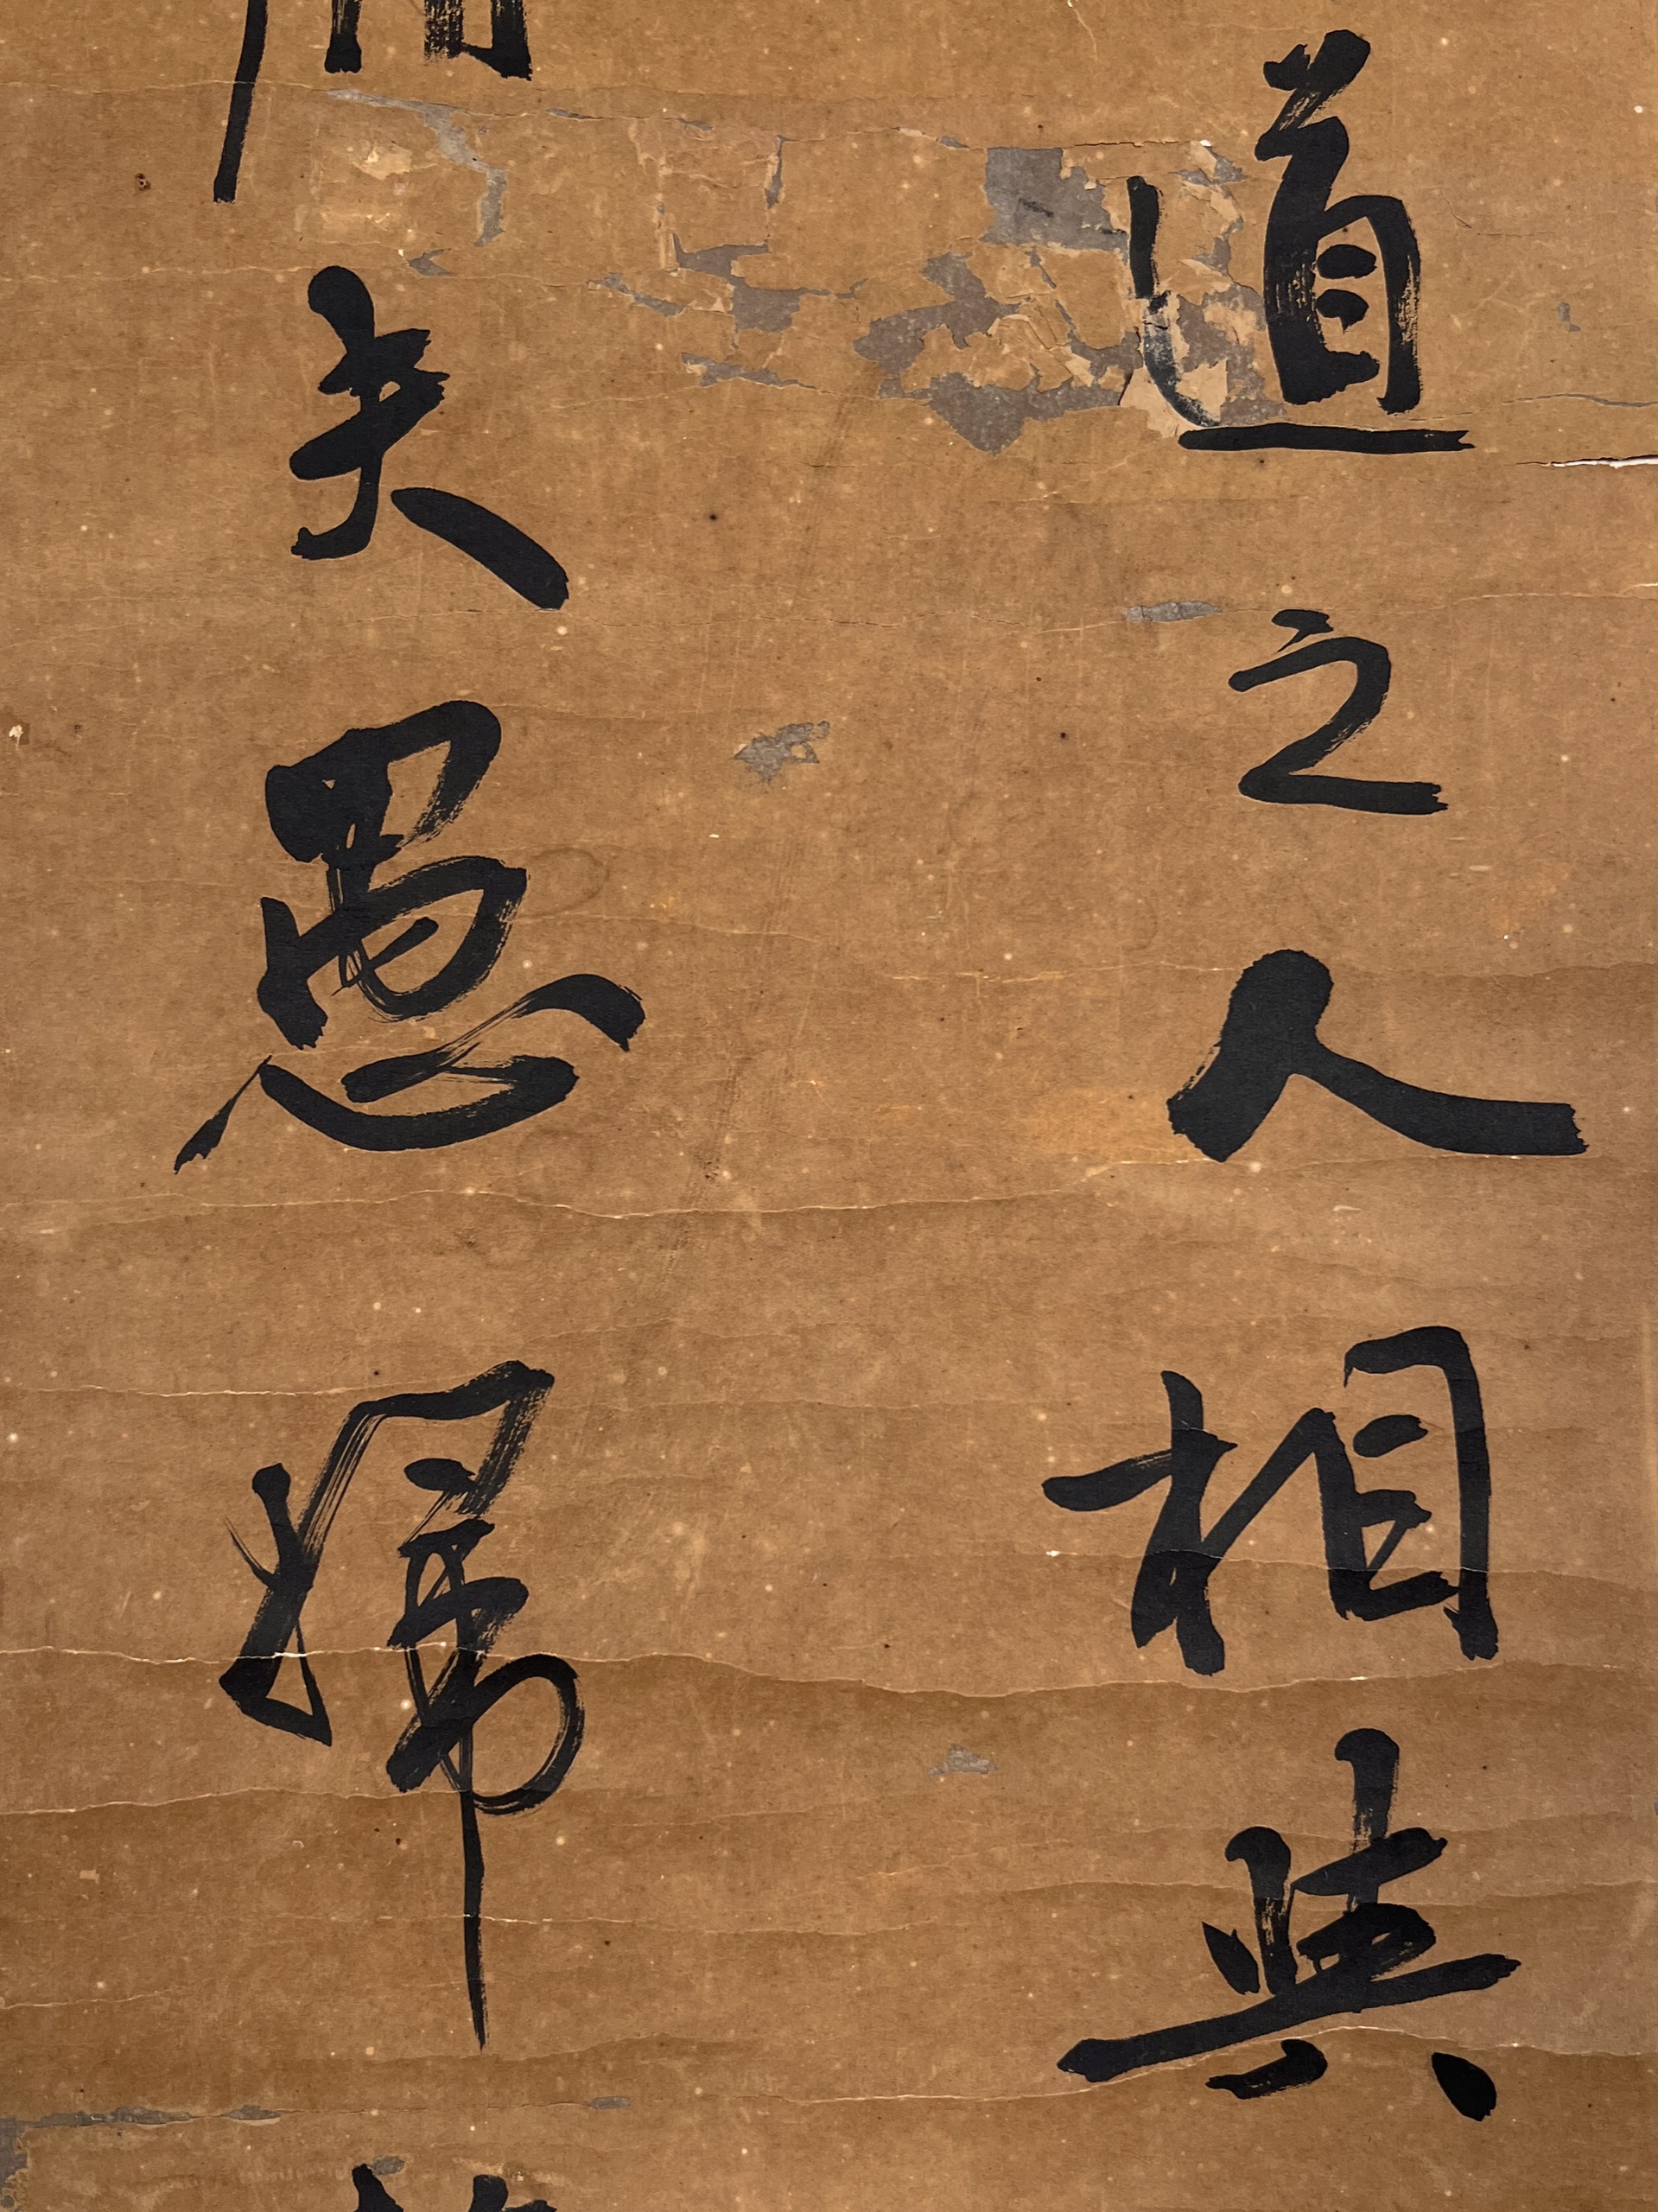 道之人相與
夫愚婦